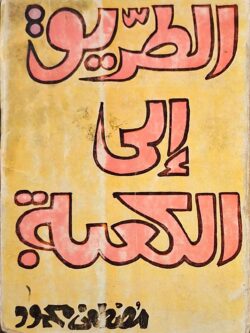 الطريق
إلى
الكعبة
مصطفى محمود